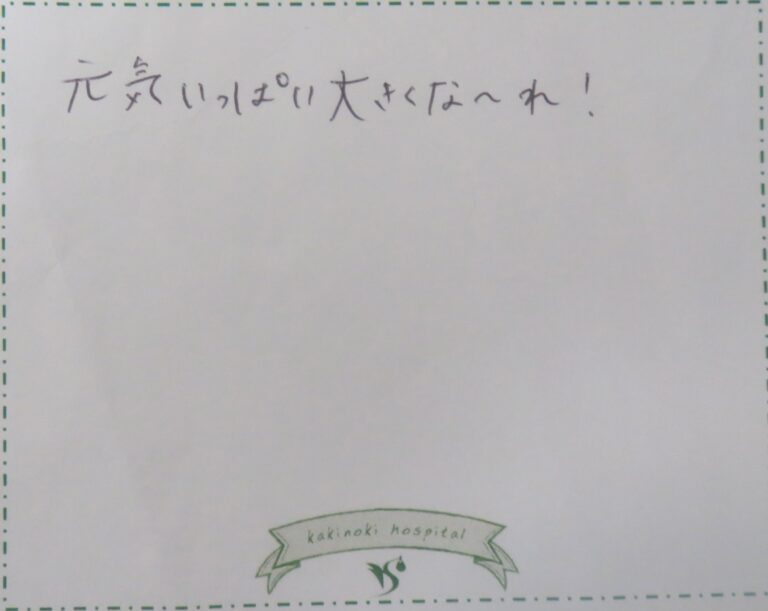 元気いっぱい大きくな～れ！
kakinoki hospital